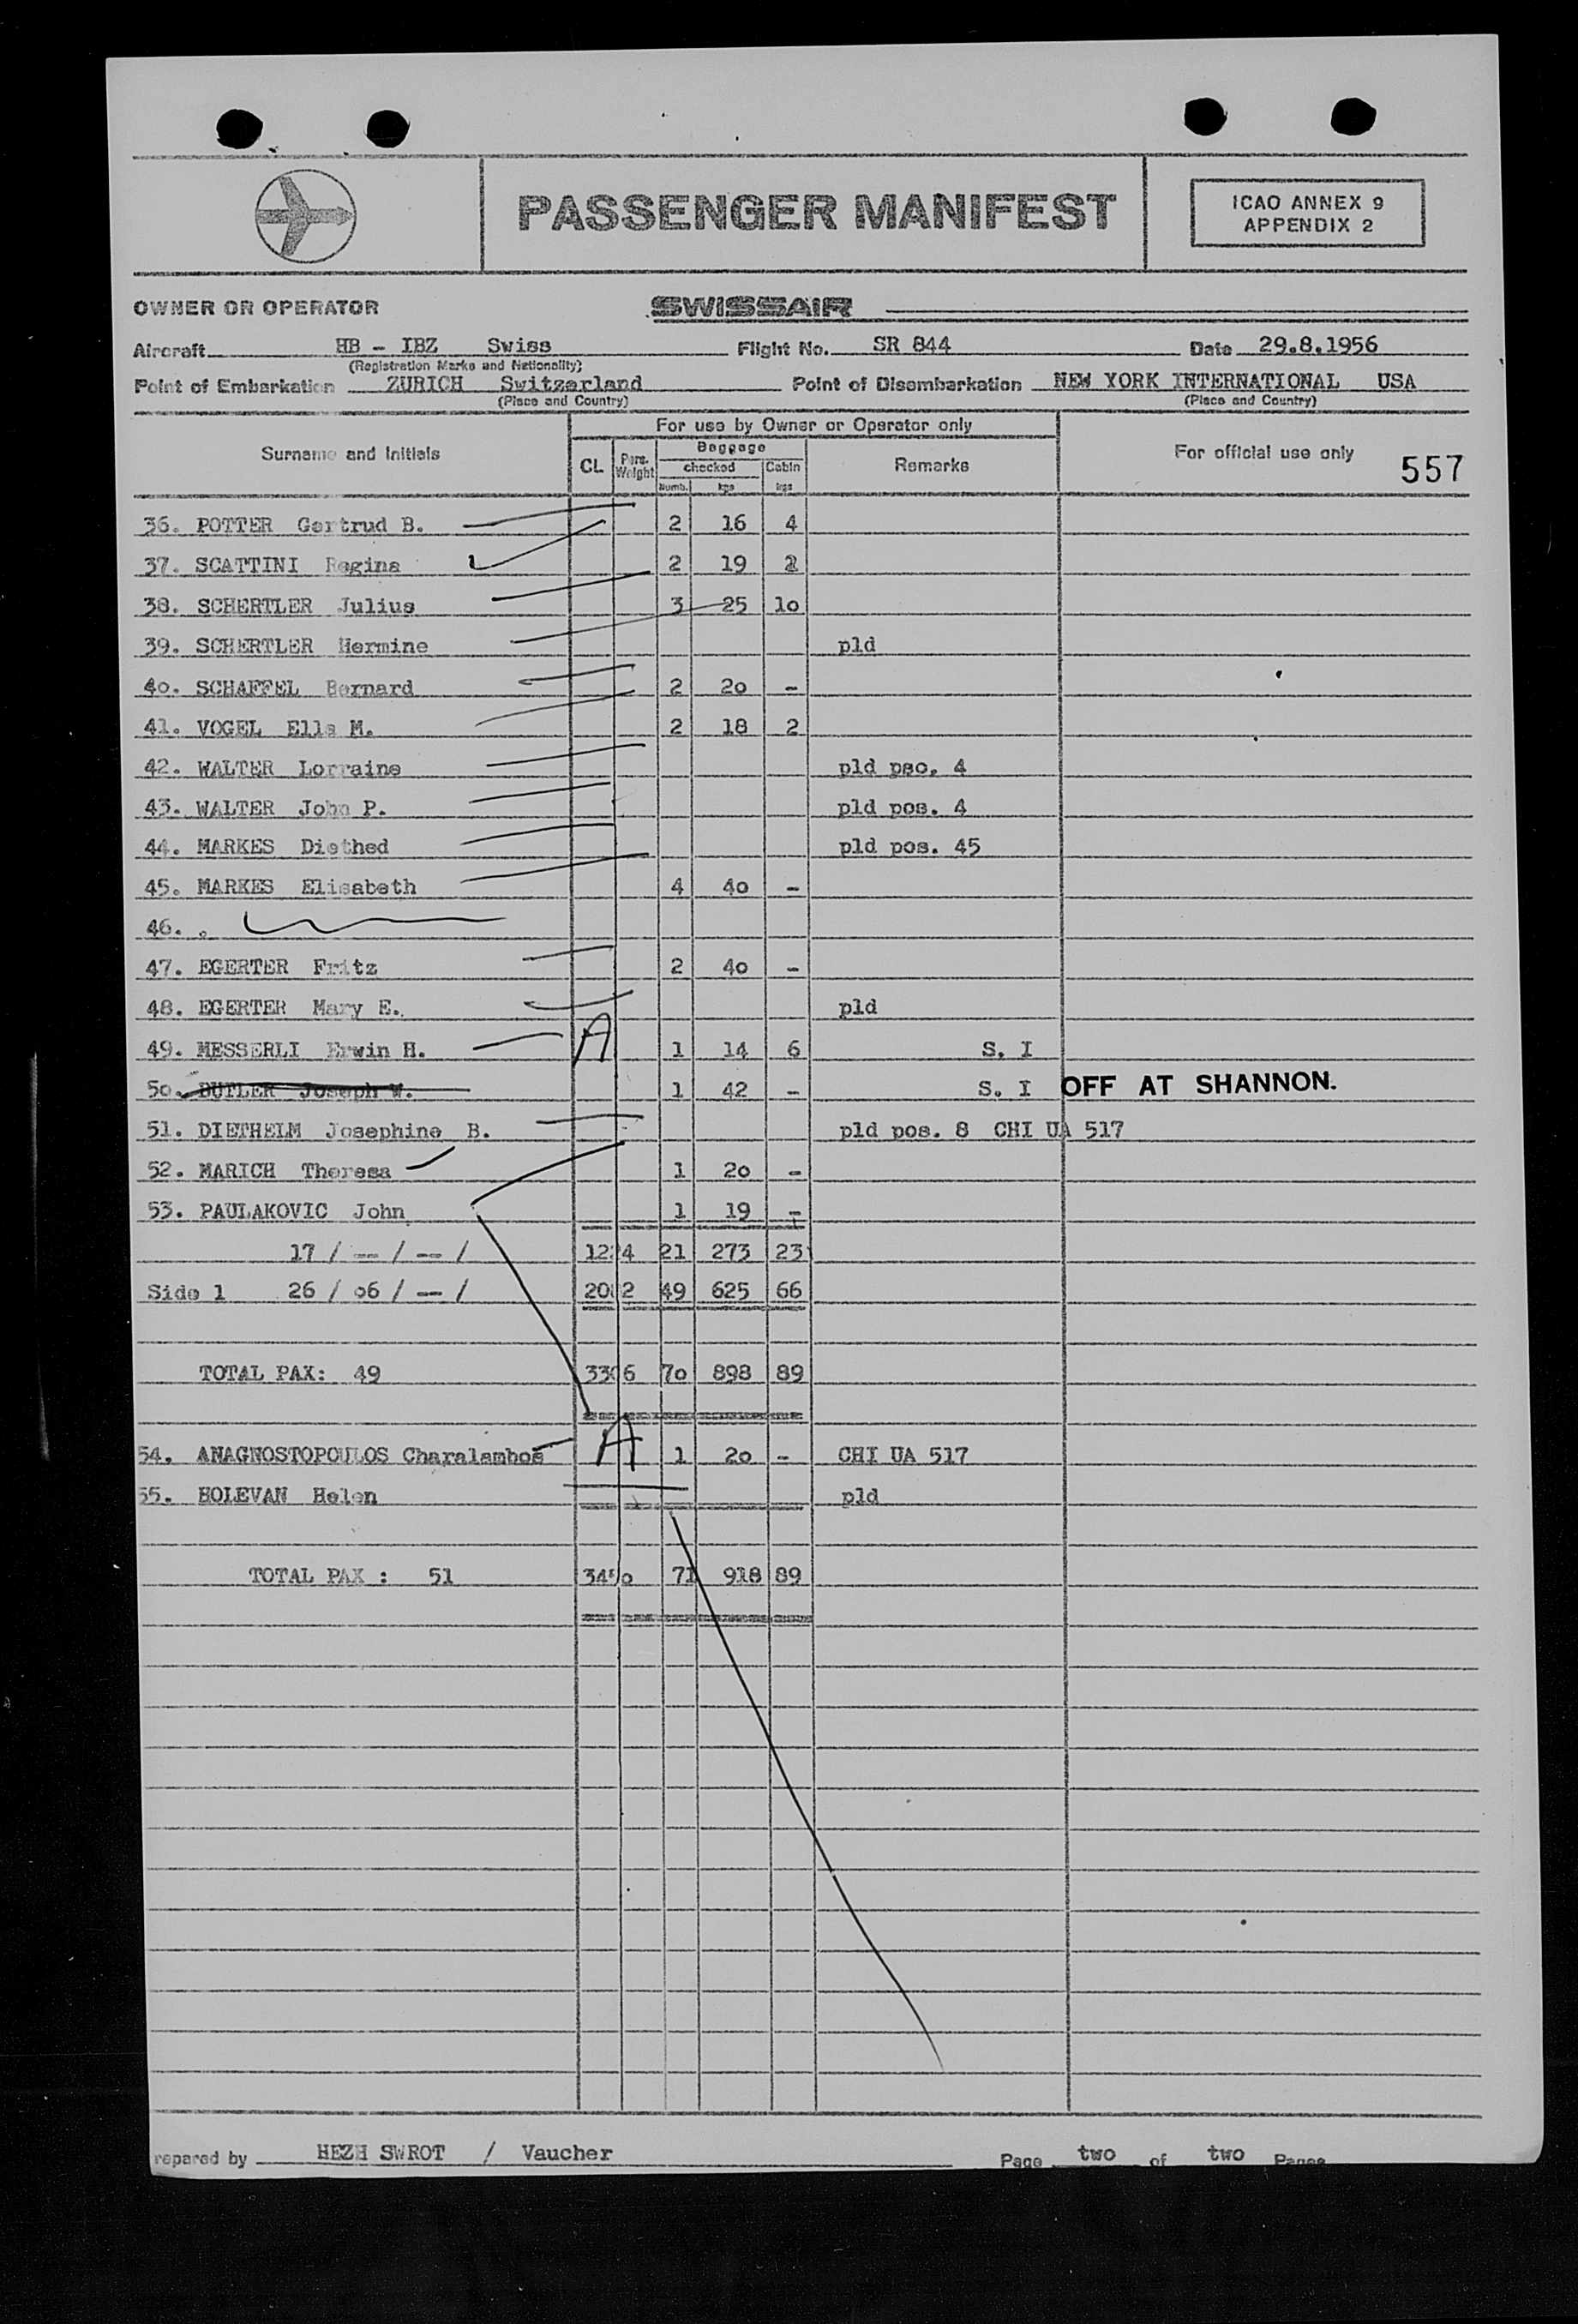 PASSENGER MANIFEST
ICAO ANNEX 9
APPENDIX 2
OWNER OR OPERATOR SWISSAIR
Aircraft HB - IBZ Swiss Flight No. SR 844 Date 29.8.1956
(Registration Marks and Nationality)
Point of Embarkation ZURICH Switzerland Point of Disembarkation NEW YORK INTERNATIONAL USA
(Place and Country) (Place and Country)
For use by Owner or Operator only
Surname and Initials CL Pers. Weight Baggage checked Numb. kgs Cabin kgs Remarks For official use only 557
36. POTTER Gertrud B. 2 16 4
37. SCATTINI Regina 2 19 2
38. SCHERTLER Julius 3 25 1o
39. SCHERTLER Hermine pld
4o. SCHAFFEL Bernard 2 2o -
41. VOGEL Ella M. 2 18 2
42. WALTER Lorraine pld pso. 4
43. WALTER John P. pld pos. 4
44. MARKES Diethed pld pos. 45
45. MARKES Elisabeth 4 4o -
46. .
47. EGERTER Fritz 2 4o -
48. EGERTER Mary E. pld
49. MESSERLI Erwin H. A 1 14 6 S. I
5o. BUTLER Joseph W. 1 42 - S. I OFF AT SHANNON.
51. DIETHELM Josephine B. pld pos. 8 CHI UA 517
52. MARICH Theresa 1 2o -
53. PAULAKOVIC John 1 19 -
17 / -- / -- / 1224 21 273 23
Side 1 26 / o6 / -- / 2082 49 625 66
TOTAL PAX: 49 33o6 7o 898 89
54. ANAGNOSTOPOULOS Charalambos A 1 2o - CHI UA 517
55. HOLEVAN Helen pld
TOTAL PAX : 51 71 918 89
repared by HEZH SWROT / Vaucher Page two of two Pages